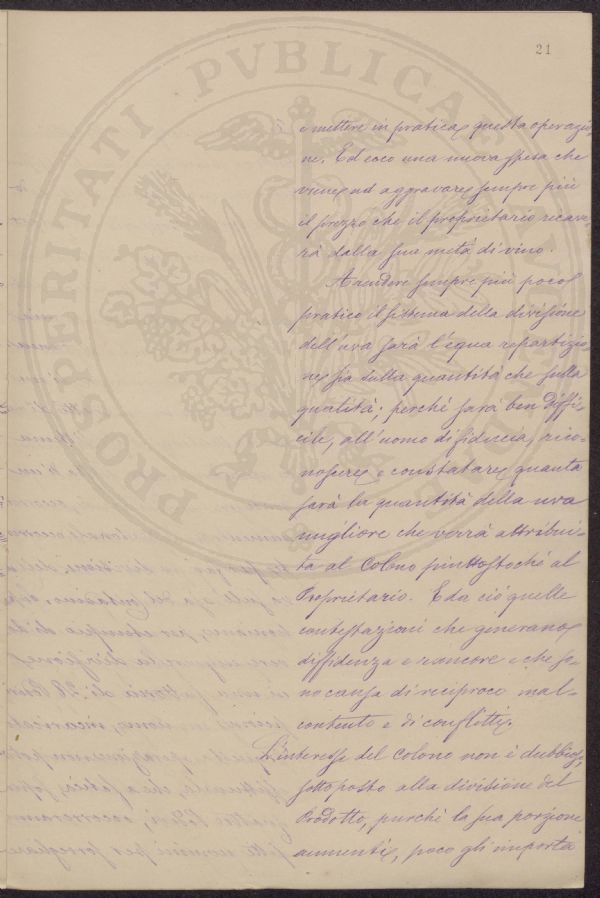 21
PROSPERITATI PVBLICAE
e mettere in pratica questa operazio-
ne. Ed ecco una nuova spesa che
viene ad aggravare sempre più
il prezzo che il proprietario ricave-
rà dalla sua metà di vino.
A rendere sempre più poco
pratico il sistema della divisione
dell'uva sarà l'equa repartizio-
ne sia sulla quantità che sulla
qualità; perché sarà ben diffi-
cile, all'uomo di fiducia, rico-
noscere e constatare quanta
sarà la quantità della uva
migliore che verrà attribui-
ta al Colono piuttostoché al
Proprietario. E da ciò quelle
contestazioni che generano
diffidenza e rancore e che so-
no causa di reciproco mal-
contento e di conflitti.
L'interesse del Colono non è dubbioso,
sottoposto alla divisione del
Prodotto, purché la sua porzione
aumenti, poco gli importa